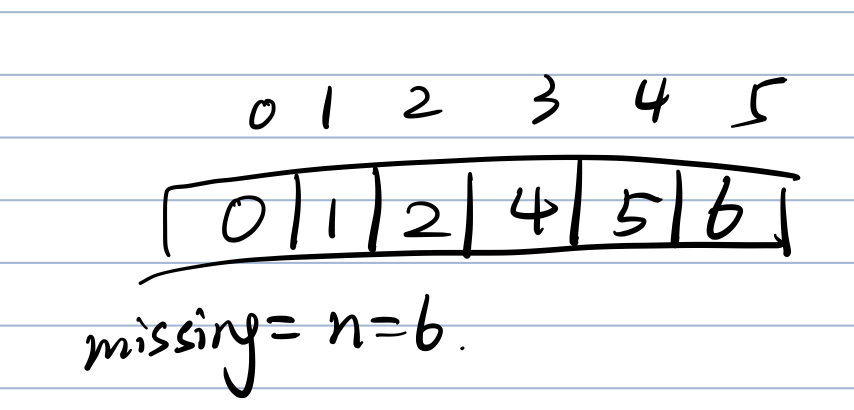 0 1 2 3 4 5
0 1 2 4 5 6
missing = n = 6.